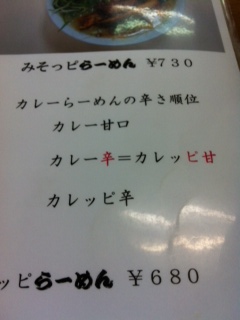 みそっピらーめん ¥730
カレーらーめんの辛さ順位
カレー甘口
カレー辛＝カレッピ甘
カレッピ辛
ッピらーめん ¥680